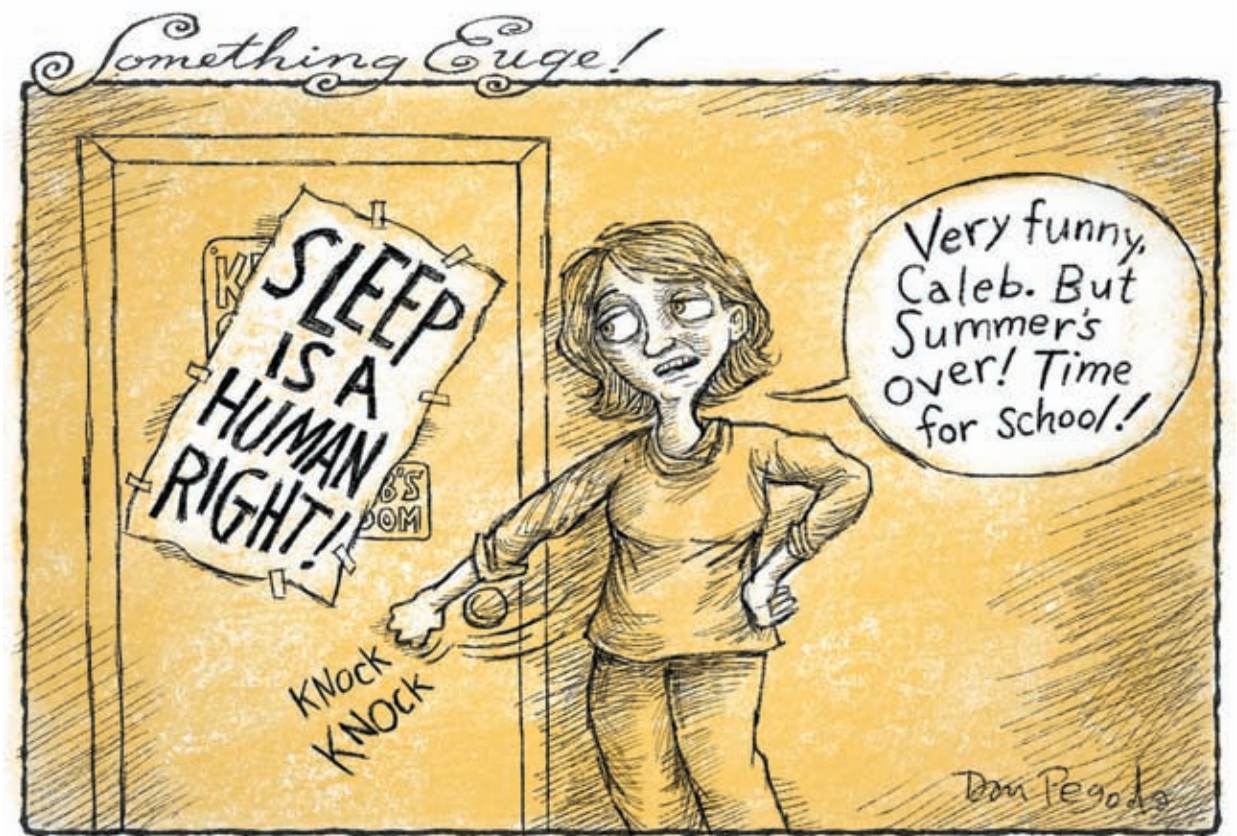 Something Euge!
SLEEP
IS A
HUMAN
RIGHT!
B'S
OOM
KNOCK
KNOCK
Very funny,
Caleb. But
Summer's
over! Time
for school!
Dan Pegoda